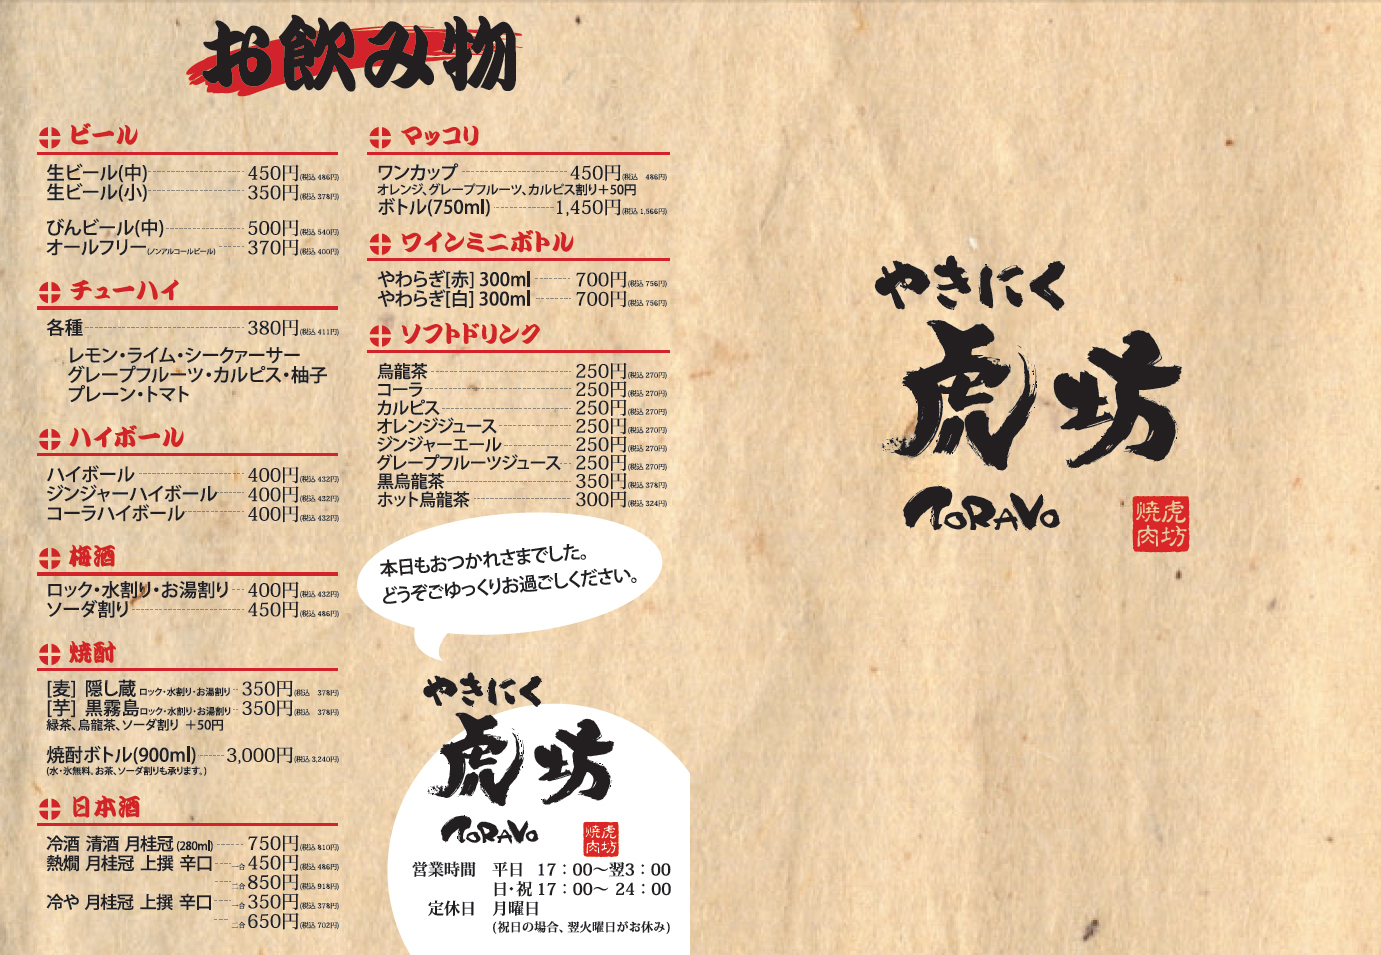 お飲み物
ビール
生ビール(中) 450円(税込 486円)
生ビール(小) 350円(税込 378円)
びんビール(中) 500円(税込 540円)
オールフリー(ノンアルコールビール) 370円(税込 400円)
チューハイ
各種 380円(税込 411円)
レモン・ライム・シークァーサー
グレープフルーツ・カルピス・柚子
プレーン・トマト
ハイボール
ハイボール 400円(税込 432円)
ジンジャーハイボール 400円(税込 432円)
コーラハイボール 400円(税込 432円)
梅酒
ロック・水割り・お湯割り 400円(税込 432円)
ソーダ割り 450円(税込 486円)
焼酎
[麦] 隠し蔵 ロック・水割り・お湯割り 350円(税込 378円)
[芋] 黒霧島 ロック・水割り・お湯割り 350円(税込 378円)
緑茶、烏龍茶、ソーダ割り ＋50円
焼酎ボトル(900ml) 3,000円(税込 3,240円)
(水・氷無料、お茶、ソーダ割りも承ります。)
日本酒
冷酒 清酒 月桂冠 (280ml) 750円(税込 810円)
熱燗 月桂冠 上撰 辛口 一合 450円(税込 486円)
二合 850円(税込 918円)
冷や 月桂冠 上撰 辛口 一合 350円(税込 378円)
二合 650円(税込 702円)
マッコリ
ワンカップ 450円(税込 486円)
オレンジ、グレープフルーツ、カルピス割り＋50円
ボトル(750ml) 1,450円(税込 1,566円)
ワインミニボトル
やわらぎ[赤] 300ml 700円(税込 756円)
やわらぎ[白] 300ml 700円(税込 756円)
ソフトドリンク
烏龍茶 250円(税込 270円)
コーラ 250円(税込 270円)
カルピス 250円(税込 270円)
オレンジジュース 250円(税込 270円)
ジンジャーエール 250円(税込 270円)
グレープフルーツジュース 250円(税込 270円)
黒烏龍茶 350円(税込 378円)
ホット烏龍茶 300円(税込 324円)
本日もおつかれさまでした。
どうぞごゆっくりお過ごしください。
やきにく
虎坊
TORAVO
焼肉虎坊
営業時間 平日 17：00～翌3：00
日・祝 17：00～ 24：00
定休日 月曜日
(祝日の場合、翌火曜日がお休み)
やきにく
虎坊
TORAVO
焼肉虎坊